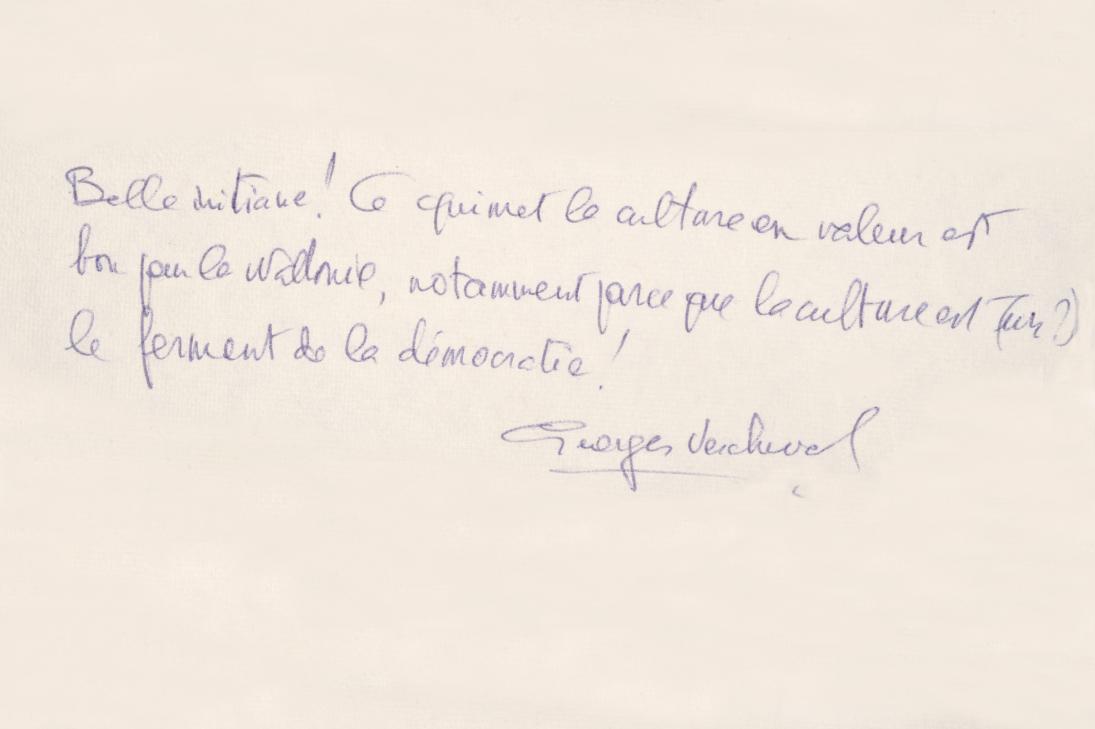 Belle initiative! Ce qui met la culture en valeur est
bon pour la Wallonie, notamment parce que la culture est (un?)
le ferment de la démocratie!
Georges Vercheval